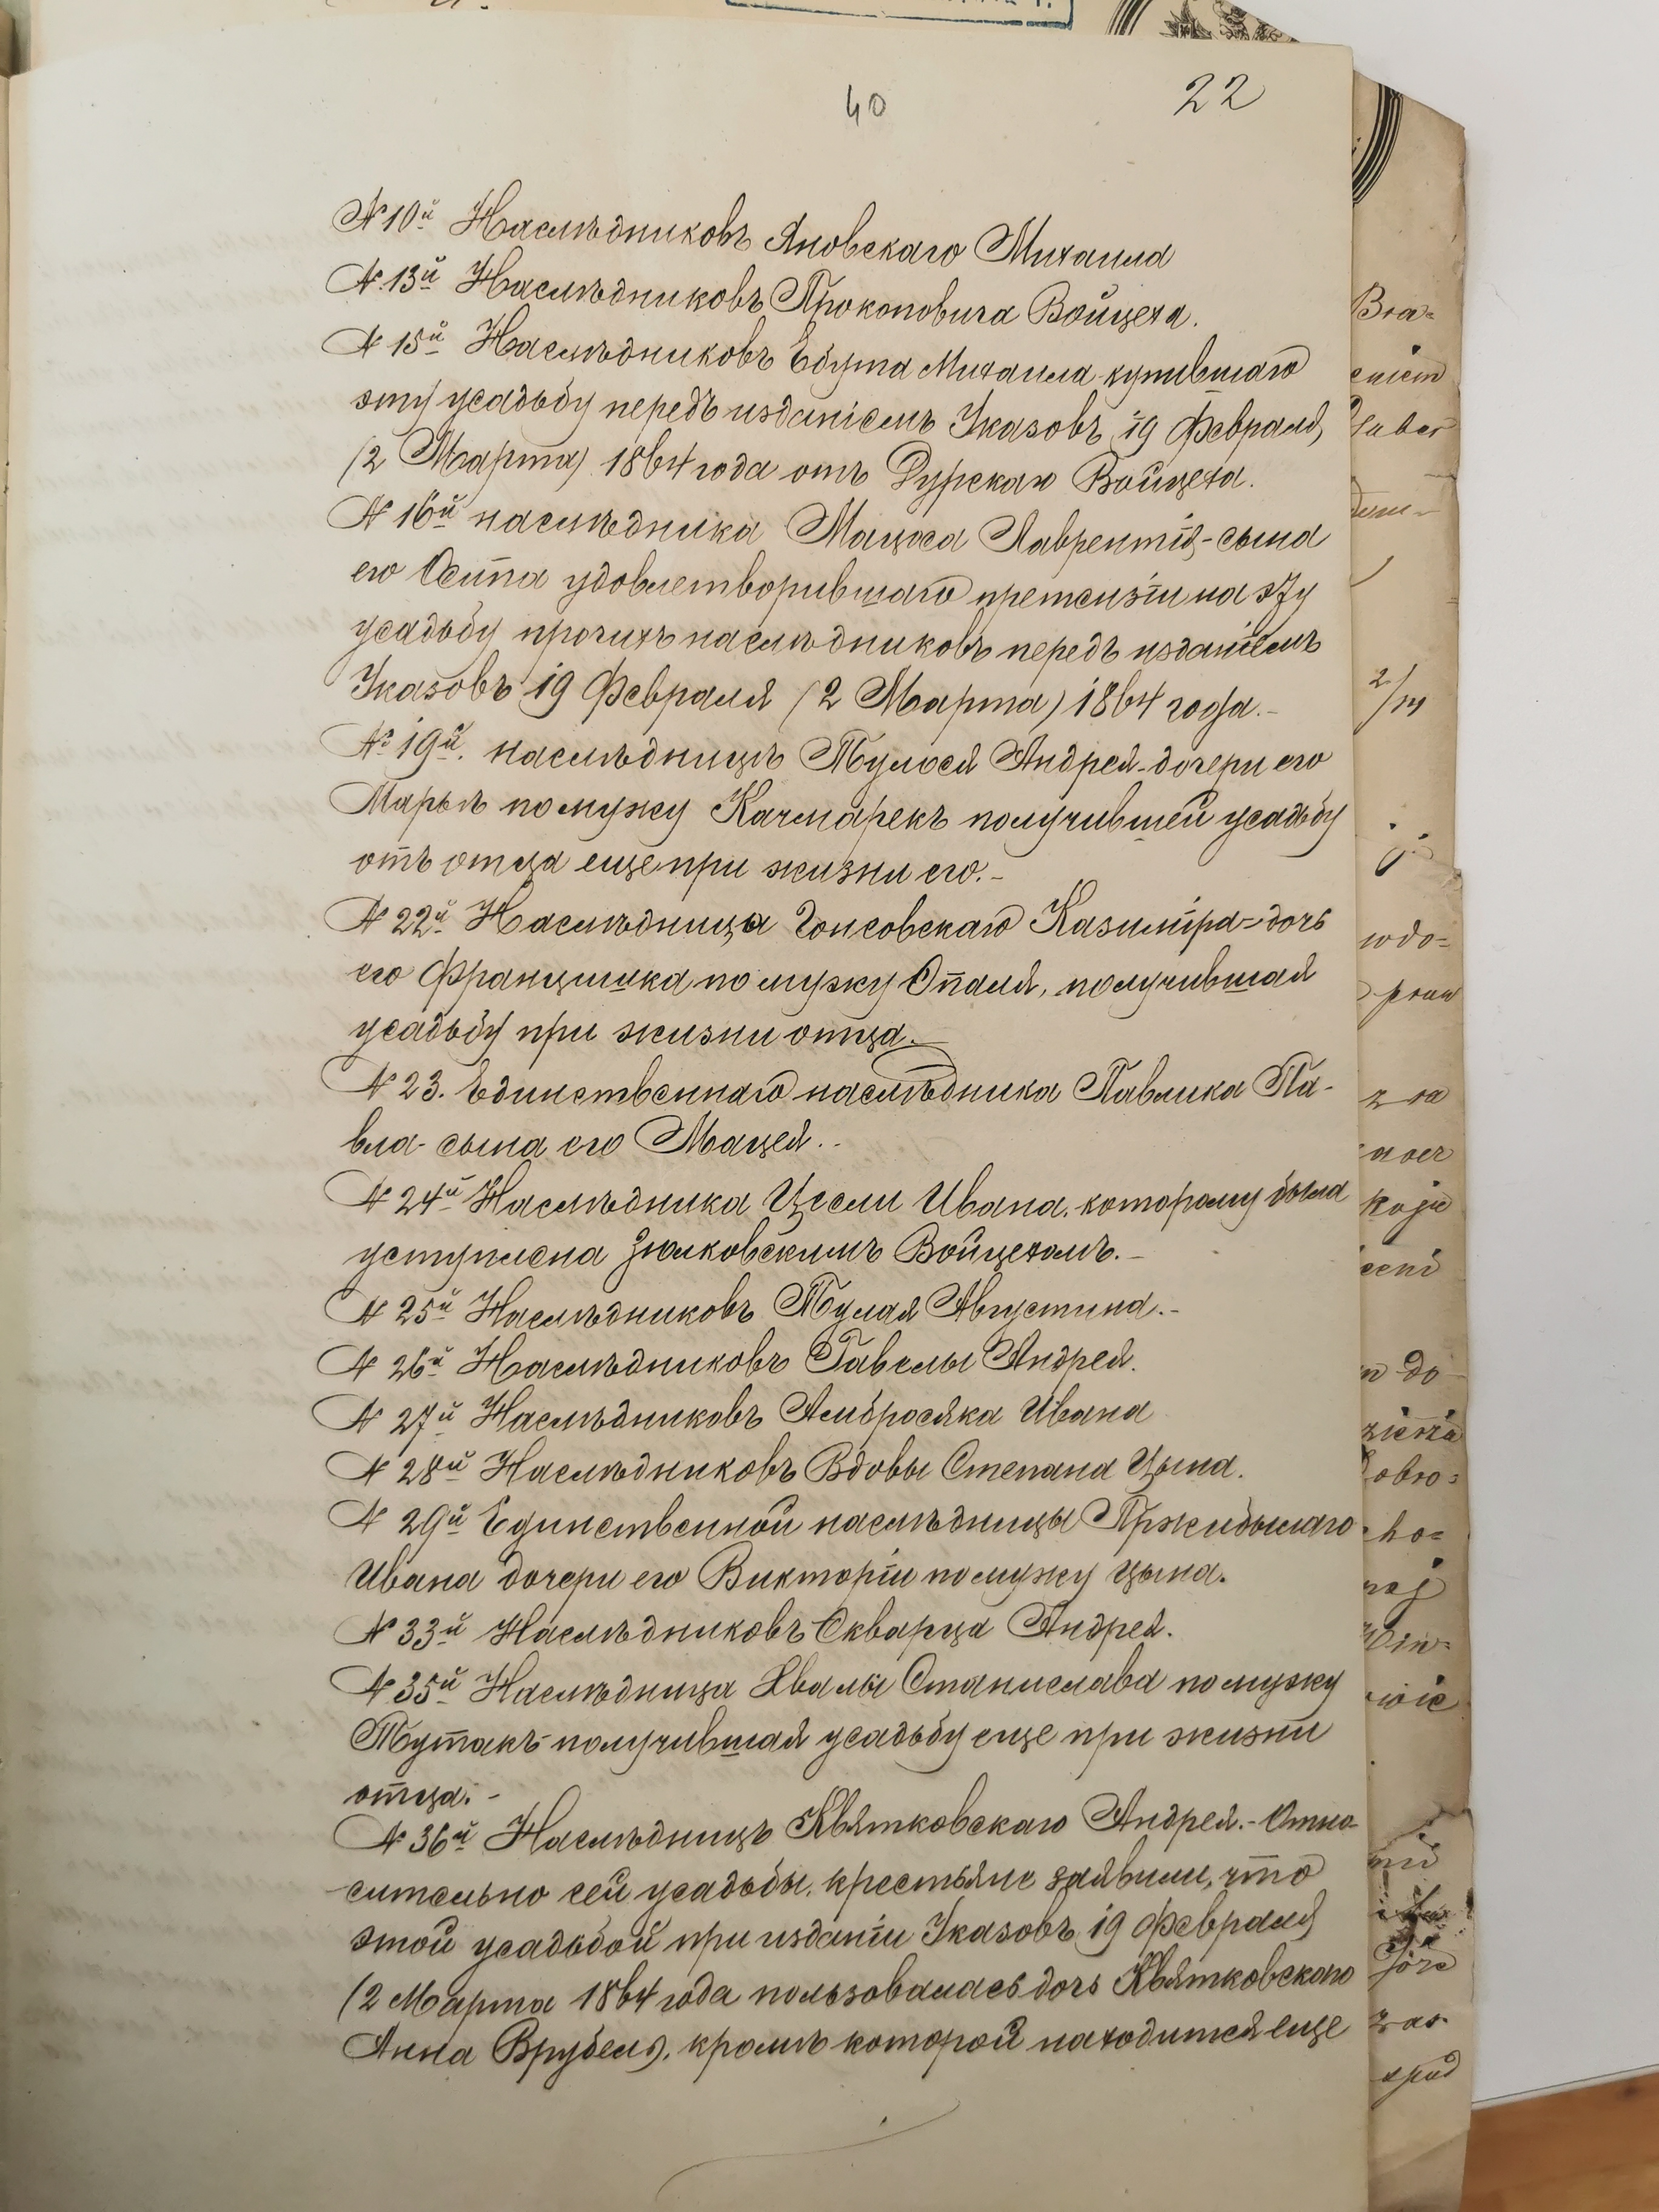 40
22
№ 10й Наслѣдниковъ Яновскаго Михаила
№ 13й Наслѣдниковъ Прокоповича Войцеха.
№ 15й Наслѣдниковъ Михаила купившаго
эту усадьбу передъ изданіемъ Указовъ 19 Февраля
(2 Марта) 1864 года отъ Гурскаго Войцеха.
№ 16й наслѣдника Лаврентія - сына
его Осипа удовлетворившаго претензіи на эту
усадьбу прочихъ наслѣдниковъ передъ изданіемъ
Указовъ 19 Февраля (2 Марта) 1864 года. -
№ 19й. наслѣдницъ Андрея - дочери его
Марьѣ по мужу Качмарекъ получившей усадьбу
отъ отца еще при жизни его. -
№ 22й Наслѣдница Гонсовскаго Казиміра = дочь
его Францишка по мужу Опаля, получившая
усадьбу при жизни отца. -
№ 23. Единственнаго наслѣдника Павлика Па-
вла - сына его Мацея. -
№ 24й Наслѣдника Ивана, которому была
уступлена Войцехомъ. -
№ 25й Наслѣдниковъ Августина. -
№ 26й Наслѣдниковъ Гавелы Андрея.
№ 27й Наслѣдниковъ Амбросяка Ивана
№ 28й Наслѣдниковъ Вдовы Степана Цына.
№ 29й Единственной наслѣдницы Пржибылаго
Ивана дочери его Викторіи по мужу Цына.
№ 33й Наслѣдниковъ Скварца Андрея.
№ 35й Наслѣдница Хвалы Станислава по мужу
получившая усадьбу еще при жизни
отца. -
№ 36й Наслѣдницъ Квятковскаго Андрея. - Отно-
сительно сей усадьбы, крестьяне заявили, что
этой усадьбой при изданіи Указовъ 19 Февраля
(2 Марта 1864 года пользовалась дочь Квятковскаго
Анна Врубель, кромѣ которой находится еще